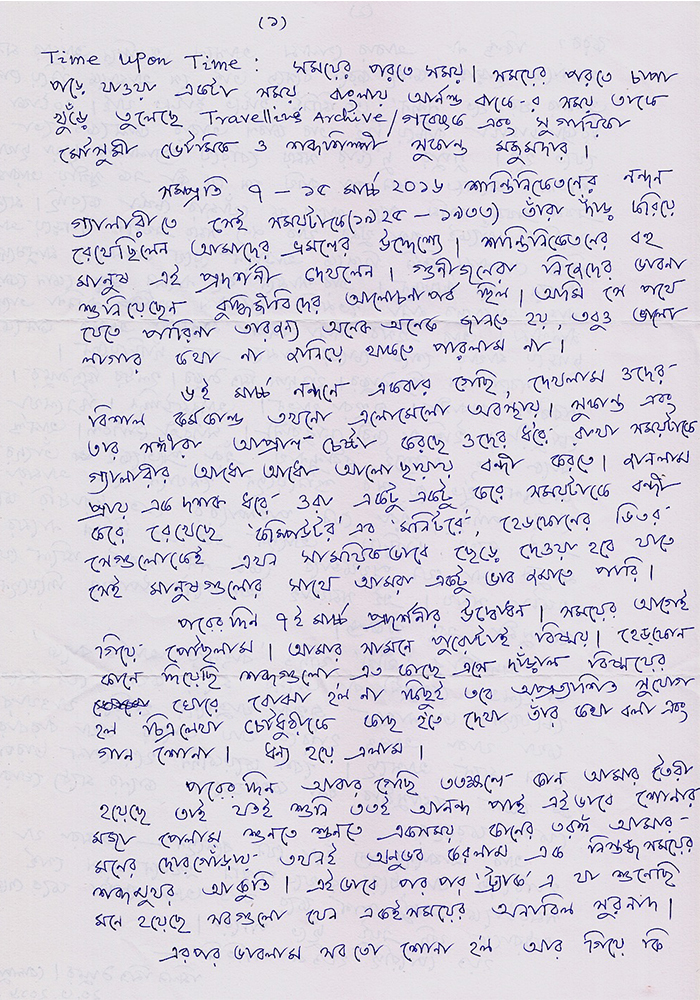 (১)
Time Upon Time : সময়ের পরতে সময়। সময়ের পরতে চাপা
পড়ে যাওয়া একটা সময় বাংলায় আর্নল্ড বাকে-র সময় তাকে
খুঁড়ে তুলেছে Travelling Archive/গবেষক এবং সুগায়িকা
মৌসুমী ভৌমিক ও শব্দশিল্পী সুকান্ত মজুমদার।
সম্প্রতি ৭ – ১৫ মার্চ ২০১৬ শান্তিনিকেতনের নন্দন
গ্যালারীতে সেই সময়টাকে(১৯২৫ – ১৯৩৩) তাঁরা দাঁড় করিয়ে
রেখেছিলেন আমাদের ভ্রমণের উদ্দেশ্যে। শান্তিনিকেতনের বহু
মানুষ এই প্রদর্শনী দেখলেন। গুনীজনেরা নিজেদের ভাবনা
শুনিয়েছেন বুদ্ধিজীবিদের আলোচনাপর্ব ছিল। আমি সে পথে
যেতে পারিনা তারজন্য অনেক অনেক জানতে হয়, তবুও ভালো
লাগার কথা না জানিয়ে থাকতে পারলাম না।
৬ই মার্চ নন্দনে একবার গেছি, দেখলাম ওদের
বিশাল কর্মকান্ড তখনো এলোমেলো অবস্থায়। সুকান্ত এবং
তার সঙ্গীরা আপ্রাণ চেষ্টা করছে ওদের ধরে রাখা সময়টাকে
গ্যালারীর আধো আধো আলো ছায়ায় বন্দী করতে। জানলাম
প্রায় এক দশক ধরে ওরা একটু একটু করে সময়টাকে বন্দী
করে রেখেছে কম্পিউটর এর মনিটরে, হেডফোনের ভিতর
সেগুলোকেই এখন সাময়িকভাবে ছেড়ে দেওয়া হবে যাতে
সেই মানুষগুলোর সাথে আমরা একটু ভাব জমাতে পারি।
পরের দিন ৭ই মার্চ প্রদর্শনীর উদ্বোধন। সময়ের আগেই
গিয়ে পৌঁছলাম। আমার সামনে পুরোটাই বিস্ময়। হেডফোন
কানে দিয়েছি শব্দগুলো এত কাছে এসে দাঁড়াল বিস্ময়ের
ঘোরে বোঝা হল না কিছুই তবে অপ্রত্যাশিত সুযোগ
হল চিত্রলেখা চৌধুরীকে কাছ হতে দেখা তাঁর কথা বলা এবং
গান শোনা। ধন্য হয়ে এলাম।
পরের দিন আবার গেছি ততক্ষণে কান আমার তৈরী
হয়েছে তাই যতই শুনি ততই আনন্দ পাই এইভাবে শোনার
মজা পেলাম শুনতে শুনতে একসময় কানের তরঙ্গ আমার
মনের দোরগোঁড়ায় তখনই অনুভব করলাম এক নিস্তব্ধ সময়ের
শব্দমুখর আকুতি। এইভাবে পর পর 'ট্র্যাক' এ যা শুনেছি
মনে হয়েছে সবগুলো যেন একইসময়ের অনাবিল সুরনাদ।
এরপর ভাবলাম সব তো শোনা হল আর গিয়ে কি